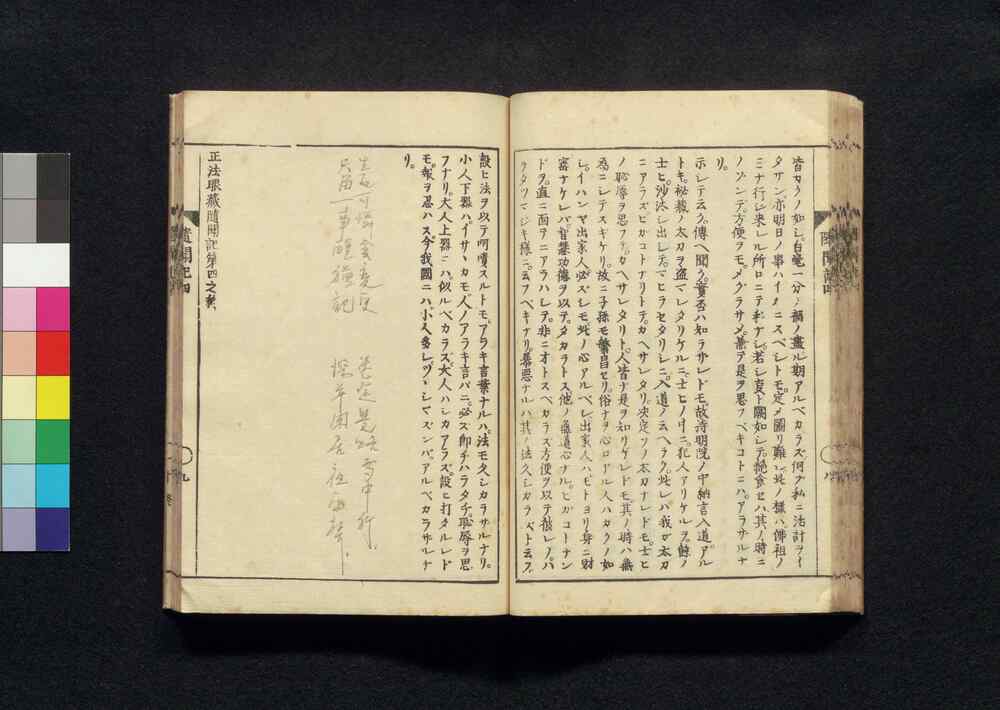 皆カクノ如シ。白毫一分ノ福ノ盡ル期アルベカラズ。何ゾ私ニ活計ヲイ
タサン。亦明日ノ事ハイカニスベシトモ。定メ圖リ難シ。此ノ様ハ佛祖ノ
ミナ行ジ來レル所ロニテ。私ナシ。若シ真ト闕如シテ。絶食セハ其ノ時ニ
ノゾンデ。方便ヲモ。メグラサメ。兼テ是ヲ思フベキコトニハ。アラサルナ
リ。
示シテ云ク。傳ヘ聞ク。實否ハ知ラサレドモ。故持明院ノ中納言入道。アル
トキ。祕藏ノ太刀ヲ盗マレタリケルニ。士ヒノ中ニ。犯人アリケルヲ。餘ノ
士ヒ。沙汰シ出シテ。マヒラセタリシニ。入道ノ云ヘラク。此レハ我ガ太刀
ニアラズ。ヒガコトナリトテ。カヘサレタリ。決定ソノ太刀ナレドモ。士ヒ
ノ恥辱ヲ思フテ。カヘサレタリト。人皆ナ是ヲ知リケレドモ。其ノ時ハ無
爲ニシテスギケリ。故ニ子孫モ繁昌セリ。俗ナヲ心ロアル人ハカクノ如
シ。イハンヤ出家人必ズシモ。此ノ心アルベシ。出家人ハ。モトヨリ身ニ財
寶ナケレバ。智慧功徳ヲ以テ。タカラトス。他ノ無道心ナル。ヒガコトナン
ドヲ。直ニ面ヲニアラハレテ。非ニオトスベカラズ。方便ヲ以テ。
ラタツマジキ様ニ。云フベキナリ。暴惡ナルハ其ノ法久シカラズト云フ。
隨聞記四
八
設ヒ法ヲ以テ呵嘖スルトモ。アラキ言葉ナルハ。法モ久シカラサルナリ。
小人下器ハ。イサヽカモ。人ノアラキ言バニ。必ズ即チハラタチ。恥辱ヲ思
フナリ。大人上器ニハ。似ルベカラズ。大人ハシカアラズ。設ヒ打タルレド
モ。報ヲ忍ハス。今我國ニハ小人多シ。ツヽシマズンバ。アルベカラサルナ
リ。
雪中
正法眼藏隨聞記第四之終
隨聞記四
九
終